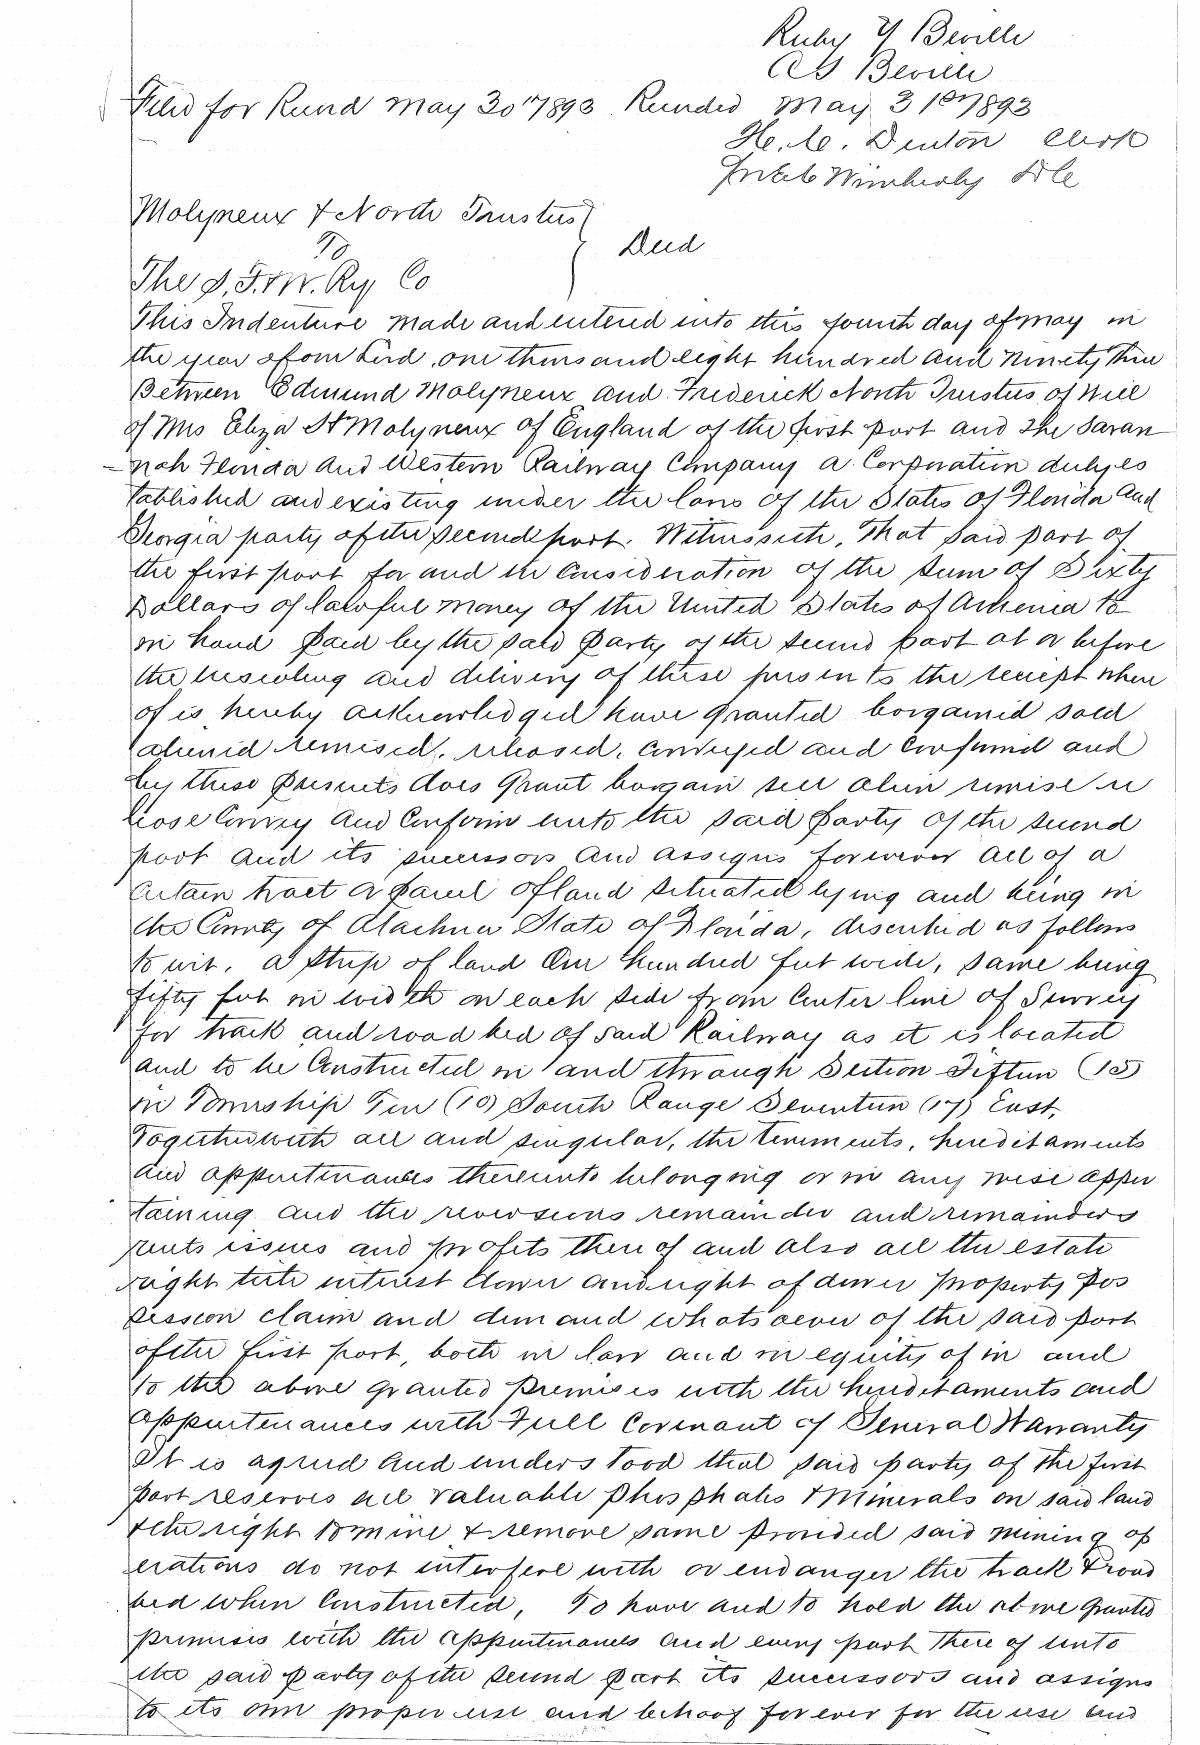 Ruby Y Beville
A S Beville
Filed for Record May 30" 1893 Recorded May 31st 1893
H. C. Denton Clerk
Wimberly D.C.
Molyneux & North Trustees
To
Deed
The S. F. & W. Ry Co
This Indenture made and entered into this fourth day of May in
the year of our Lord one thousand eight hundred and ninety three
Between Edmund Molyneux and Frederick North Trustees of Will
of Mrs Eliza H Molyneux of England of the first part and the Savan
nah Florida and Western Railway Company a Corporation duly es
tablished and existing under the laws of the States of Florida and
Georgia party of the second part. Witnesseth, That said part of
the first part for and in consideration of the sum of Sixty
Dollars of lawful money of the United States of America to
in hand paid by the said party of the second part at or before
the ensealing and delivery of these presents the receipt where
of is hereby acknowledged have granted bargained sold
aliened remised, released, conveyed and confirmed and
by these presents does grant bargain sell alien remise re
lease convey and confirm unto the said party of the second
part and its successors and assigns forever all of a
certain tract or parcel of land situated lying and being in
the County of Alachua State of Florida, described as follows
to wit, a strip of land One hundred feet wide, same being
fifty feet in width on each side from Center line of Survey
for track and road bed of said Railway as it is located
and to be Constructed in and through Section Fifteen (15)
in Township Ten (10) South Range Seventeen (17) East,
Together with all and singular, the tenements, hereditaments
and appurtenances thereunto belonging or in any wise apper
taining and the reversions remainder and remainders
rents issues and profits thereof and also all the estate
right title interest dower and right of dower property pos
session claim and demand whatsoever of the said part
of the first part, both in law and in equity of in and
to the above granted premises with the hereditaments and
appurtenances with Full Covenant of General Warranty
It is agreed and understood that said party of the first
part reserves all valuable Phosphates & Minerals on said land
& the right to mine & remove same provided said mining op
erations do not interfere with or endanger the track & road
bed when Constructed, To have and to hold the above granted
premises with the appurtenances and every part there of unto
the said party of the second part its successors and assigns
to its own proper use and behoof forever for the use and